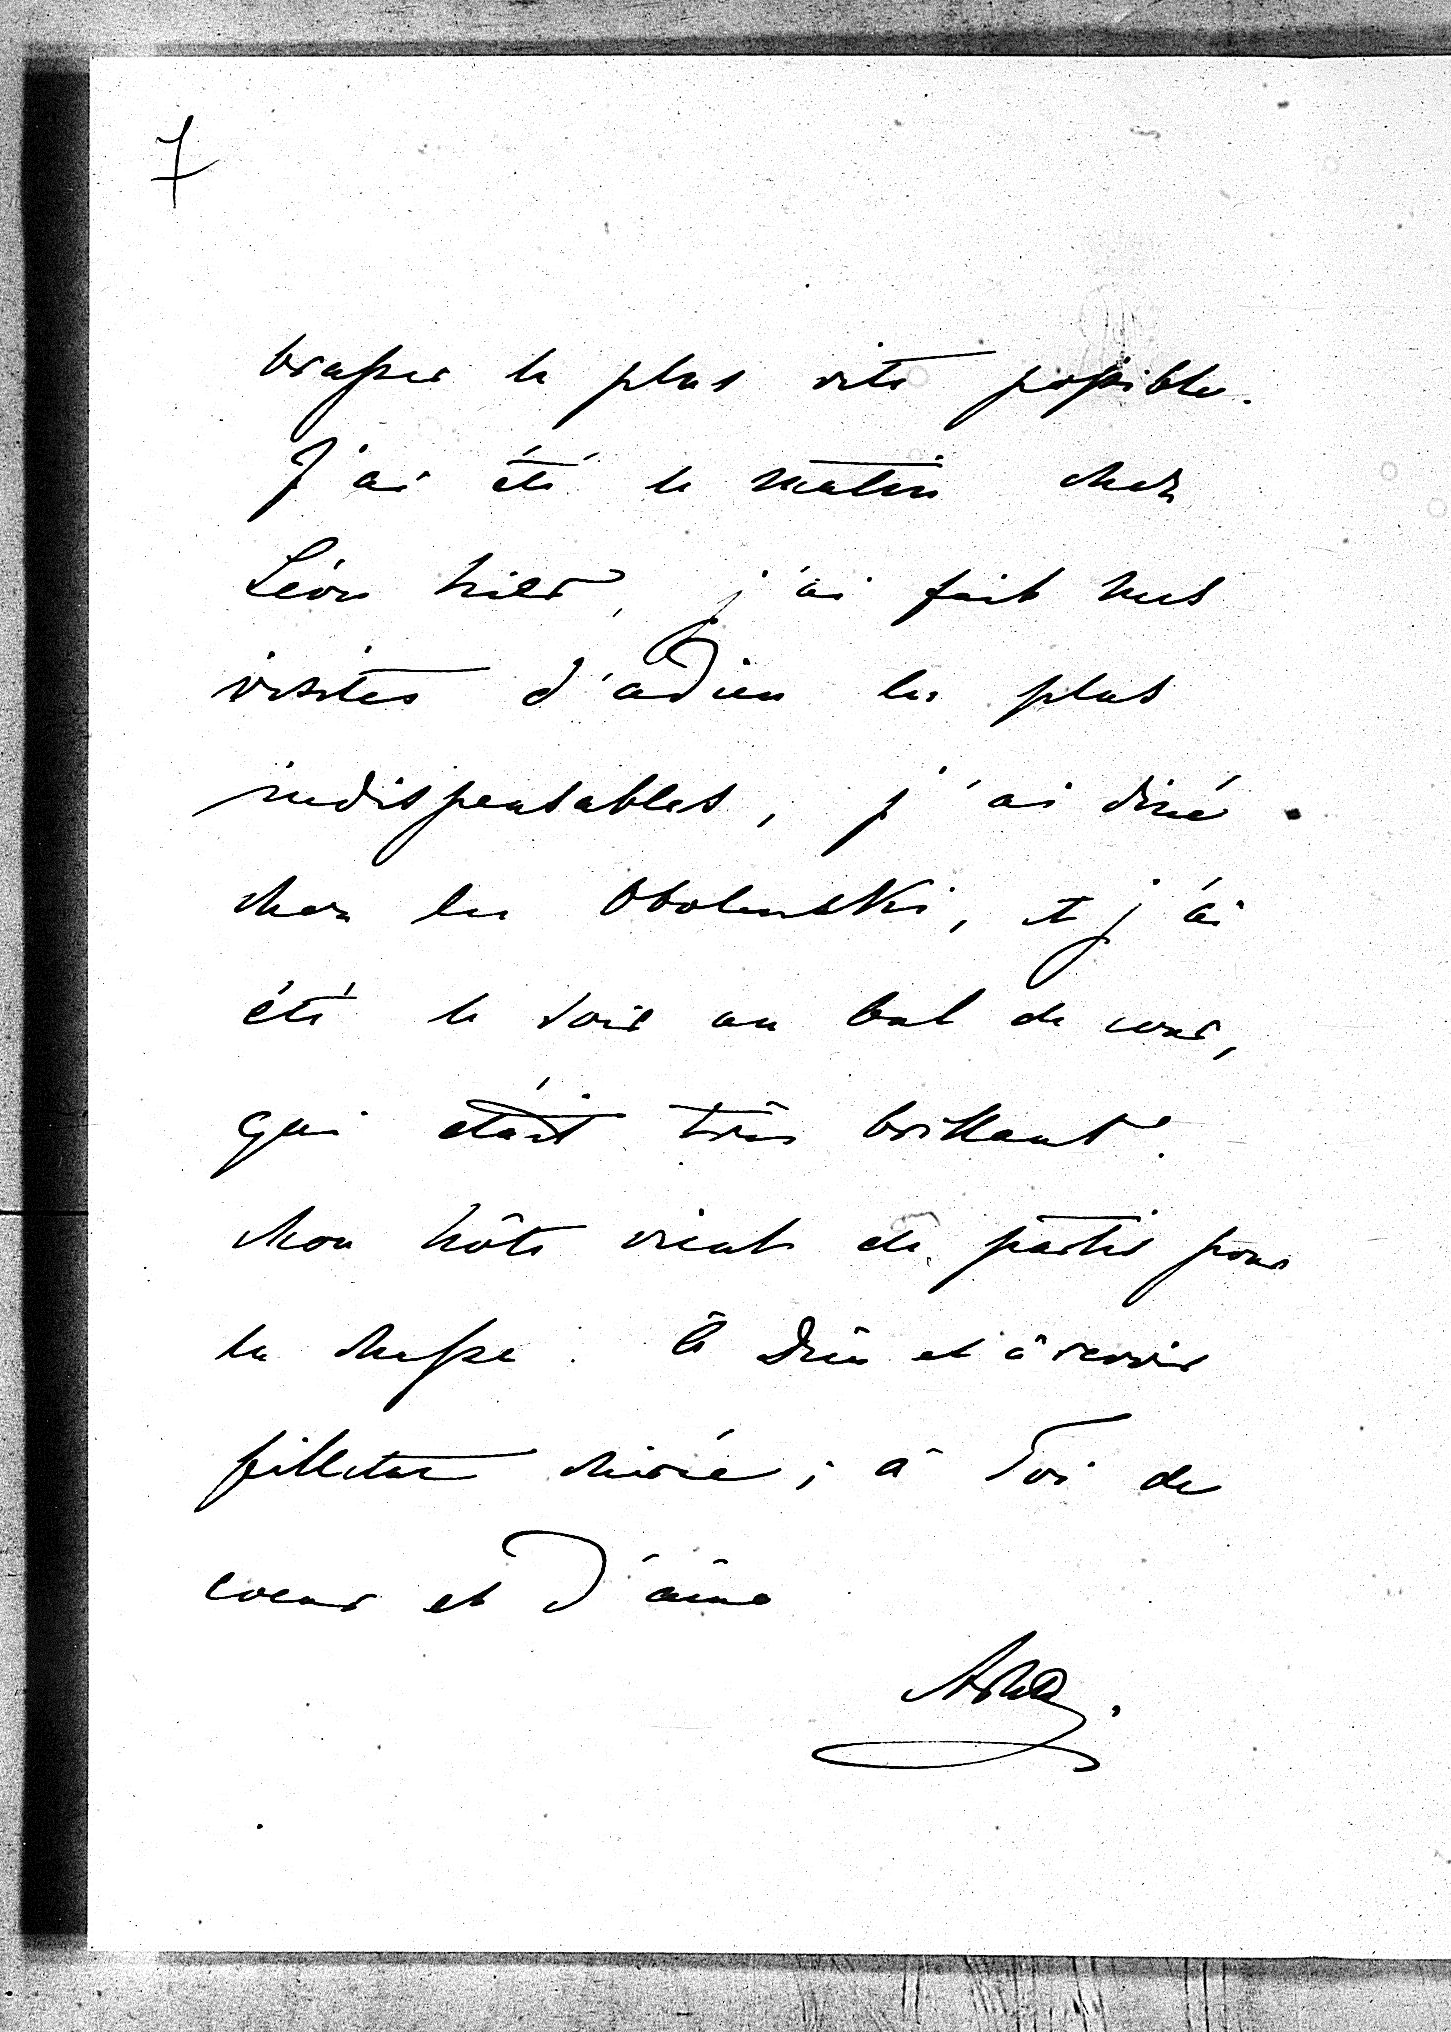 7
brasser le plus vite possible.
J'ai été le matin chez
Léon hier, j'ai fait mes
visites d'adieu les plus
indispensables, j'ai diné
chez les Obolenski, et j'ai
été le soir au bal de cour,
qui était très brillant.
Mon hôte vient de partir pour
la chasse. à Dieu et à revoir
fillette chérie; à Toi de
coeur et d'âme